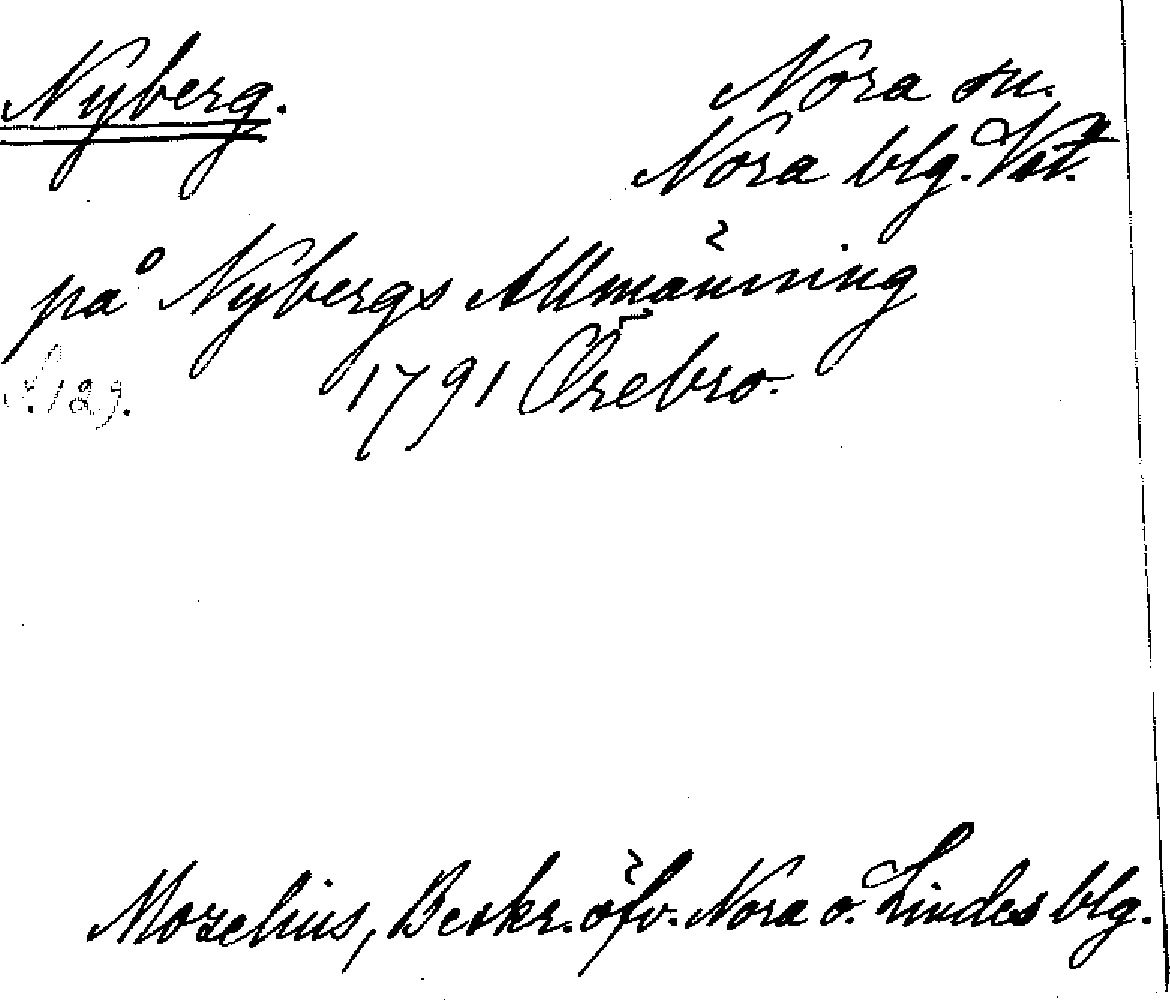 Nyberg.
Nora sn.
Nora blg. Vstm.
på Nybergs Allmänning
S. 129. 1791 Örebro.
Morelius, Beskr. öfv. Nora o. Lindes blg.